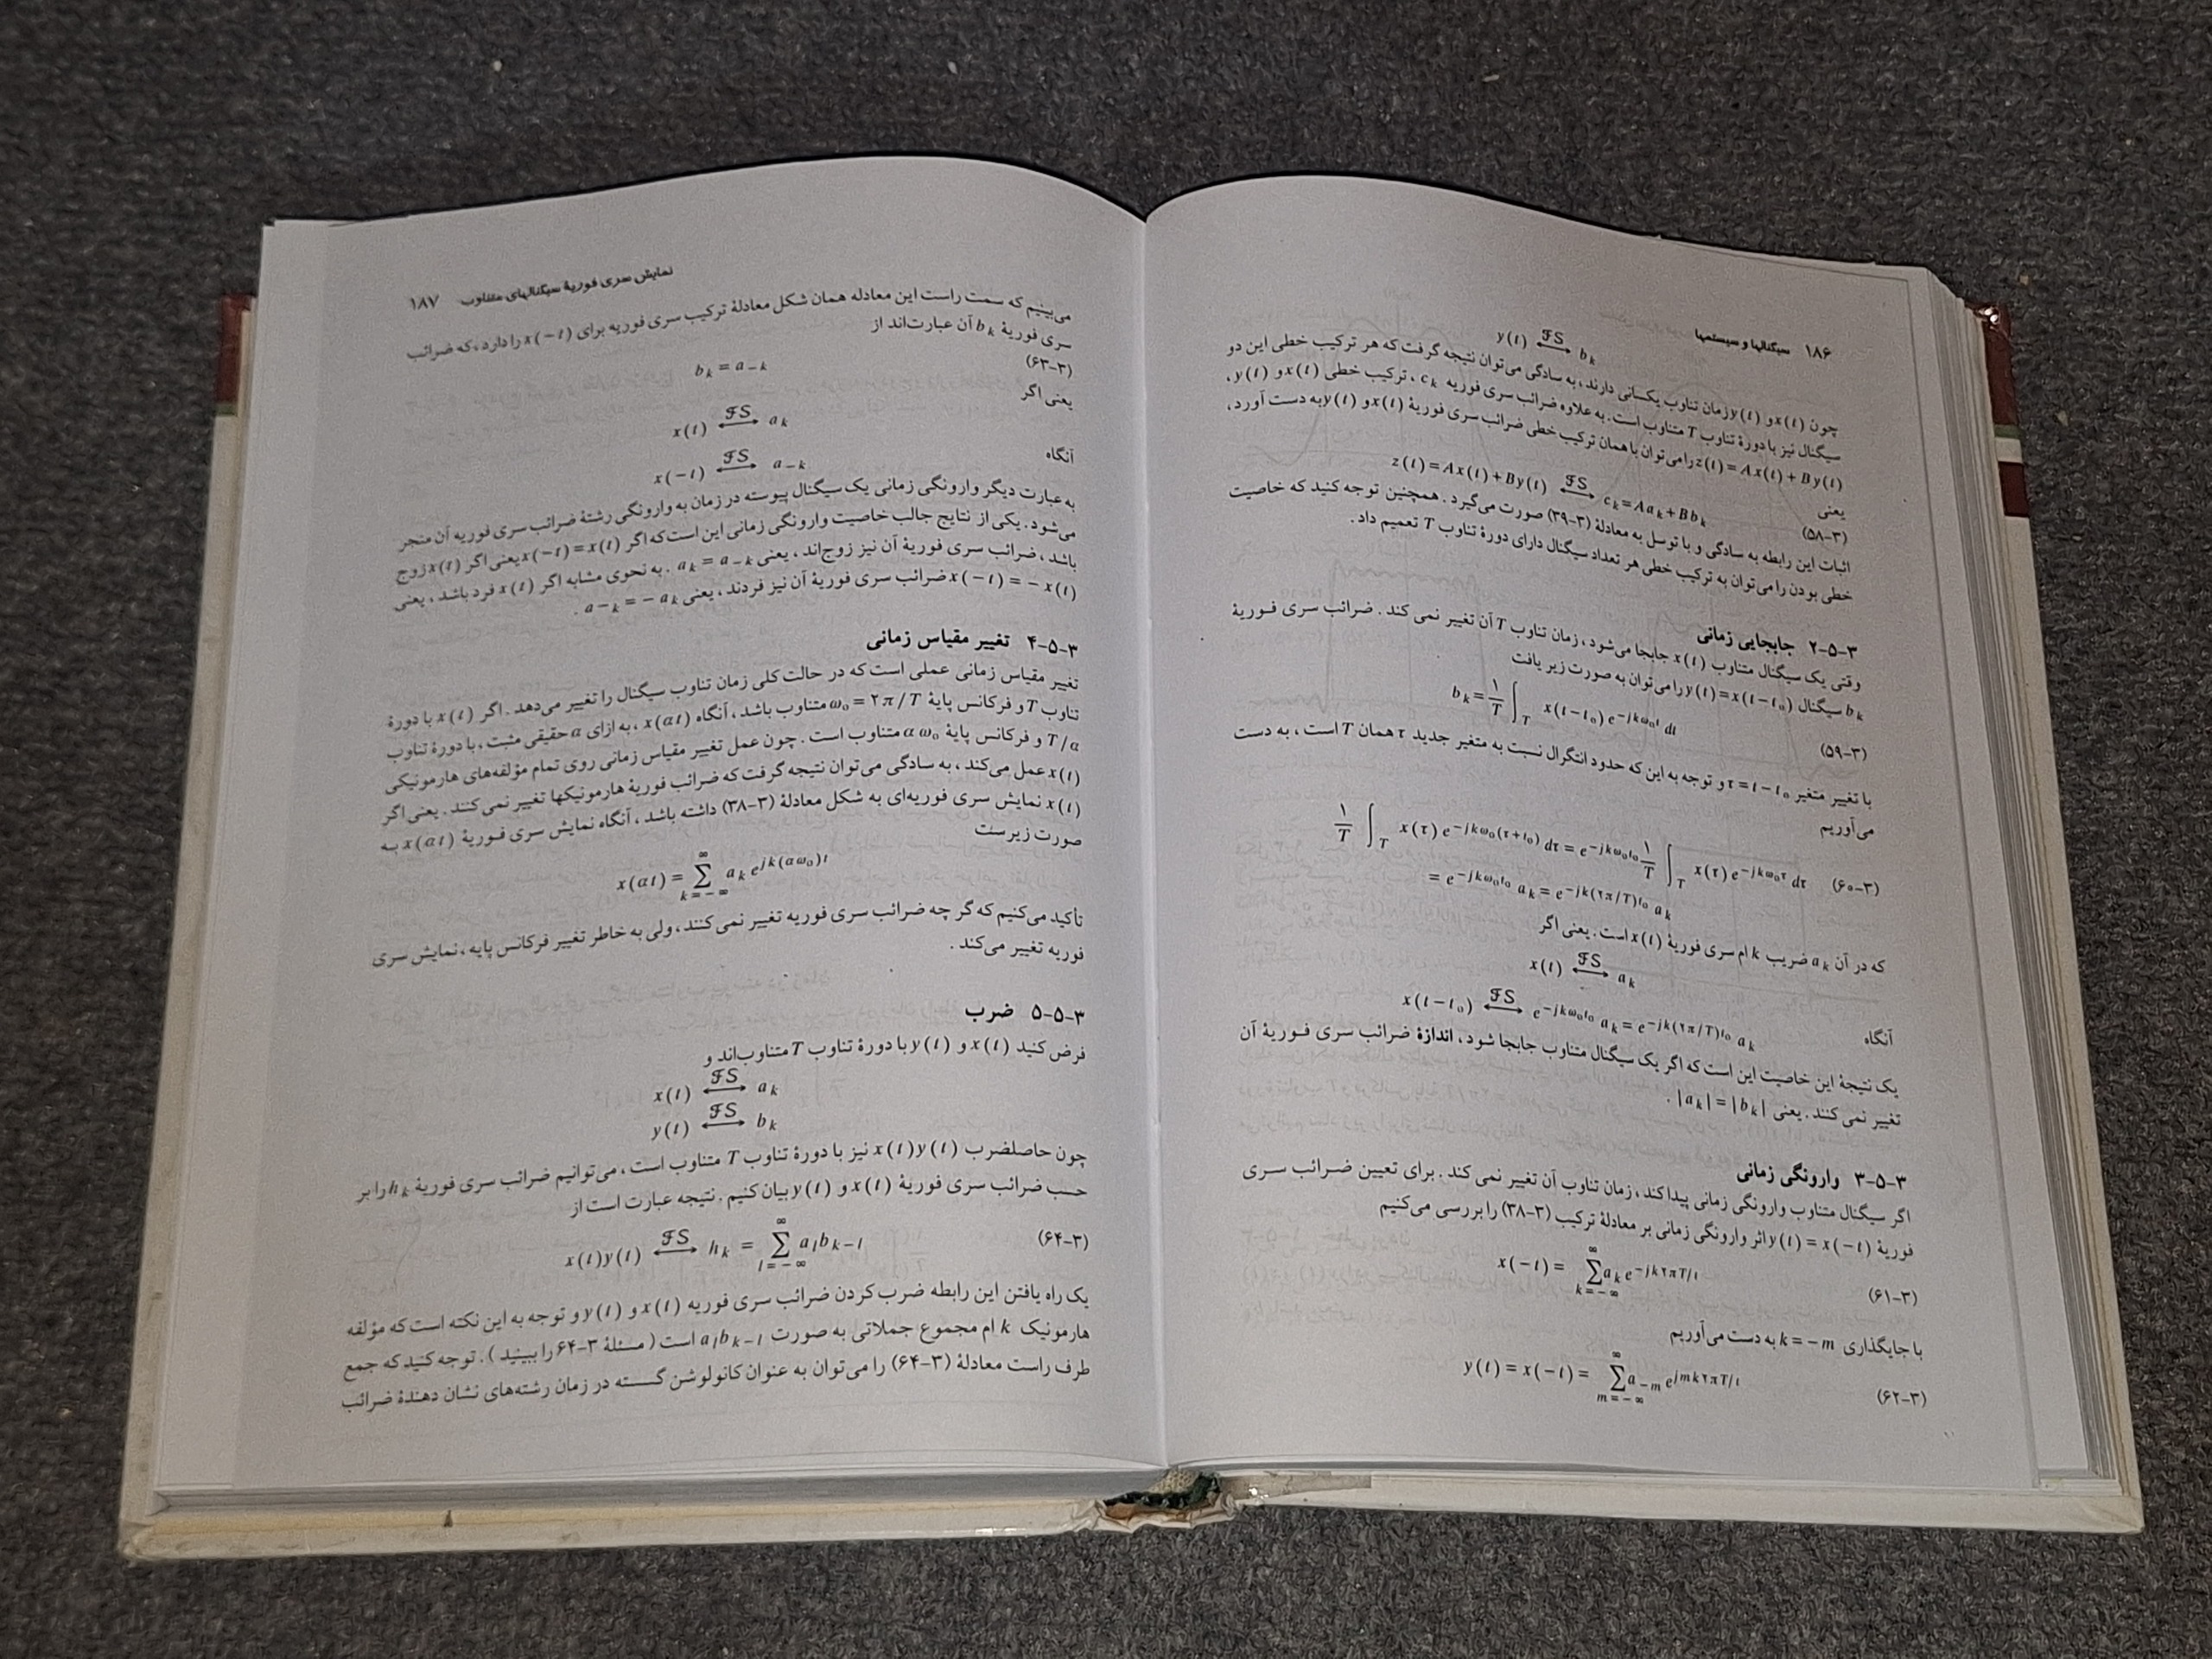 ۱۸۶ سیگنالها و سیستمها
y(t) ⟷FS b_k
چون x(t) و y(t) زمان تناوب یکسانی دارند، به سادگی می‌توان نتیجه گرفت که هر ترکیب خطی این دو
سیگنال نیز با دورهٔ تناوب T متناوب است. به علاوه ضرائب سری فوریه c_k، ترکیب خطی x(t) و y(t)،
z(t)=Ax(t)+By(t) را می‌توان با همان ترکیب خطی ضرائب سری فوریهٔ x(t) و y(t) به دست آورد،
یعنی
(۳-۵۸) z(t)=Ax(t)+By(t) ⟷FS c_k=Aa_k+Bb_k
اثبات این رابطه به سادگی و با توسل به معادلهٔ (۳-۳۹) صورت می‌گیرد. همچنین توجه کنید که خاصیت
خطی بودن را می‌توان به ترکیب خطی هر تعداد سیگنال دارای دورهٔ تناوب T تعمیم داد.
۳-۵-۲ جابجایی زمانی
وقتی یک سیگنال متناوب x(t) جابجا می‌شود، زمان تناوب T آن تغییر نمی کند. ضرائب سری فوریهٔ
b_k سیگنال y(t)=x(t-t₀) را می‌توان به صورت زیر یافت
(۳-۵۹) b_k = ۱/T ∫_T x(t-t₀) e^{-jkω₀t} dt
با تغییر متغیر τ=t-t₀ و توجه به این که حدود انتگرال نسبت به متغیر جدید τ همان T است، به دست
می‌آوریم
(۳-۶۰) ۱/T ∫_T x(τ) e^{-jkω₀(τ+t₀)} dτ = e^{-jkω₀t₀} ۱/T ∫_T x(τ) e^{-jkω₀τ} dτ
= e^{-jkω₀t₀} a_k = e^{-jk(۲π/T)t₀} a_k
که در آن a_k ضریب k ام سری فوریهٔ x(t) است. یعنی اگر
x(t) ⟷FS a_k
آنگاه
x(t-t₀) ⟷FS e^{-jkω₀t₀} a_k = e^{-jk(۲π/T)t₀} a_k
یک نتیجهٔ این خاصیت این است که اگر یک سیگنال متناوب جابجا شود، اندازهٔ ضرائب سری فوریهٔ آن
تغییر نمی کنند. یعنی |a_k|=|b_k|.
۳-۵-۳ وارونگی زمانی
اگر سیگنال متناوب وارونگی زمانی پیدا کند، زمان تناوب آن تغییر نمی کند. برای تعیین ضرائب سری
فوریهٔ y(t)=x(-t) اثر وارونگی زمانی بر معادلهٔ ترکیب (۳-۳۸) را بررسی می‌کنیم
(۳-۶۱) x(-t) = ∑_{k=-∞}^{∞} a_k e^{-jk۲πT/t}
با جایگذاری k=-m به دست می‌آوریم
(۳-۶۲) y(t) = x(-t) = ∑_{m=-∞}^{∞} a_{-m} e^{jmk۲πT/t}
نمایش سری فوریهٔ سیگنالهای متناوب ۱۸۷
می‌بینیم که سمت راست این معادله همان شکل معادلهٔ ترکیب سری فوریه برای x(-t) را دارد، که ضرائب
سری فوریهٔ b_k آن عبارت‌اند از
(۳-۶۳) b_k = a_{-k}
یعنی اگر
x(t) ⟷FS a_k
آنگاه
x(-t) ⟷FS a_{-k}
به عبارت دیگر وارونگی زمانی یک سیگنال پیوسته در زمان به وارونگی رشتهٔ ضرائب سری فوریه آن منجر
می‌شود. یکی از نتایج جالب خاصیت وارونگی زمانی این است که اگر x(-t)=x(t) یعنی اگر x(t) زوج
باشد، ضرائب سری فوریهٔ آن نیز زوج‌اند، یعنی a_k = a_{-k}. به نحوی مشابه اگر x(t) فرد باشد، یعنی
x(-t) = -x(t) ضرائب سری فوریهٔ آن نیز فردند، یعنی a_{-k} = -a_k.
۳-۵-۴ تغییر مقیاس زمانی
تغییر مقیاس زمانی عملی است که در حالت کلی زمان تناوب سیگنال را تغییر می‌دهد. اگر x(t) با دورهٔ
تناوب T و فرکانس پایهٔ ω₀=۲π/T متناوب باشد، آنگاه x(αt)، به ازای α حقیقی مثبت، با دورهٔ تناوب
T/α و فرکانس پایهٔ αω₀ متناوب است. چون عمل تغییر مقیاس زمانی روی تمام مؤلفه‌های هارمونیکی
x(t) عمل می‌کند، به سادگی می‌توان نتیجه گرفت که ضرائب فوریهٔ هارمونیکها تغییر نمی‌کنند. یعنی اگر
x(t) نمایش سری فوریه‌ای به شکل معادلهٔ (۳-۳۸) داشته باشد، آنگاه نمایش سری فوریهٔ x(αt) به
صورت زیرست
x(αt) = ∑_{k=-∞}^{∞} a_k e^{jk(αω₀)t}
تأکید می‌کنیم که گر چه ضرائب سری فوریه تغییر نمی‌کنند، ولی به خاطر تغییر فرکانس پایه، نمایش سری
فوریه تغییر می‌کند.
۳-۵-۵ ضرب
فرض کنید x(t) و y(t) با دورهٔ تناوب T متناوب‌اند و
x(t) ⟷FS a_k
y(t) ⟷FS b_k
چون حاصلضرب x(t)y(t) نیز با دورهٔ تناوب T متناوب است، می‌توانیم ضرائب سری فوریهٔ h_k را بر
حسب ضرائب سری فوریهٔ x(t) و y(t) بیان کنیم. نتیجه عبارت است از
(۳-۶۴) x(t)y(t) ⟷FS h_k = ∑_{l=-∞}^{∞} a_l b_{k-l}
یک راه یافتن این رابطه ضرب کردن ضرائب سری فوریه x(t) و y(t) و توجه به این نکته است که مؤلفه
هارمونیک k ام مجموع جملاتی به صورت a_l b_{k-l} است (مسئلهٔ ۳-۶۴ را ببینید). توجه کنید که جمع
طرف راست معادلهٔ (۳-۶۴) را می‌توان به عنوان کانولوشن گسسته در زمان رشته‌های نشان دهندهٔ ضرائب